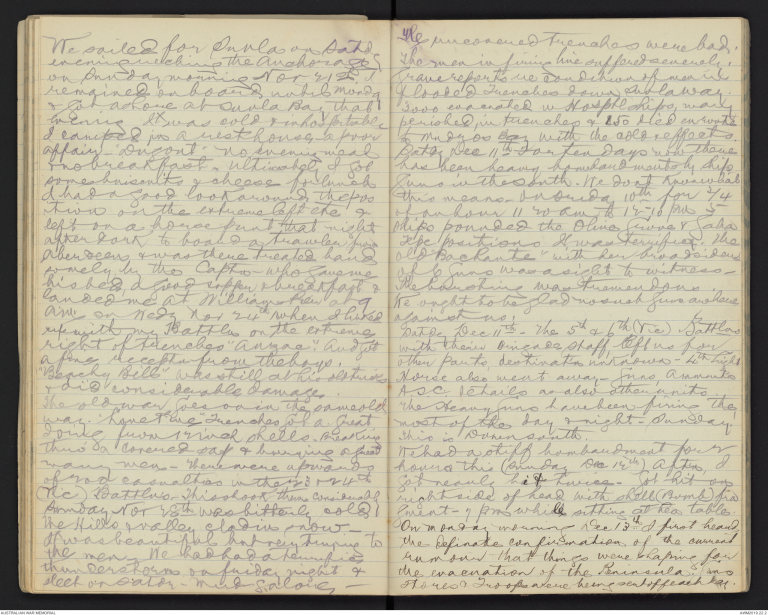 We sailed for Suvla on Satdy
evening reaching the Anchorage
on Sunday morning Nov 21st. I
remained on board until Monday
& got ashore at Suvla Bay that
evening. It was cold & inhospitable
I camped in a rest house a poor
affair - "Dugout" - no evening meal
& no breakfast - Ultimately I got
some biscuits & cheese for lunch
I had a good look around the pos
ition on the extreme left etc &
left on a horse punt that night
after dark to board a trawler from
Aberdeen & was there treated hand
somely by the Captn - who gave me
his bed a good supper & breakfast &
landed me at Williams Pier at 9
AM on Wedy Nov 24th when I linked
up with my Battln on the extreme
right of trenches "Anzac". And got
a fine reception from the boys.
"Beachy Bill" was still at his old tricks
& did considerable damage.
The old war goes on in the same old
way. Lone Pine Trenches got a great
doing from 12 inch shells. Breaking
thro' a covered sap & burying a great
many men - There were upwards
of 200 casualties in the 23rd & 24th
(Vic) Battlns - This shook them considerably
Sunday Nov 28th was bitterly cold
the Hills & valley clad in snow -
It was beautiful but very trying to
the men. We had had a terrific
thunderstorm on friday night &
sleet on Satdy - Mud galore -
The uncovered trenches were bad.
The men in firing line suffered severely.
Grave reports re condition of men in
flooded Trenches down Suvla way.
3000 evacuated in Hospl ships, many
perished in trenches & 200 died en route
to Mudros Bay with the cold effects
Satdy Dec 11th For ten days now there
has been heavy bombardments by ships
Guns in the South. We dont know what
this means. On friday 10th for 3/4
of an hour 11 30 am to 12-10 pm 3
ships pounded the Olive Grove & Gaba
Tepe positions It was terrific. The
old "Bachante" with her broadsides
of 6 guns was a sight to witness -
The bursting was tremendous
We ought to be glad no such guns are here
against us!
Satdy Dec 11th - The 5th & 6th (Vic) Battlns
with their Brigade staff left us for
other parts, destination unknown - 4th Light
Horse also went away - Guns, Ammunts
A S C details as also other units
The Heavy guns have been firing the
most of the day & night - Sunday
This is Down South.
We had a stiff bombardment for 2
hours this (Sunday Dec 12th) aftn, I
got nearly hit twice - Got hit on
right side of head with shell (Bomb) frag
ment - 7 pm while sitting at tea table.
On Monday morning Dec 13th I first heard
the definate confirmation of the current
rumour that things were shaping for
the evacuation of the Peninsula. Guns
Stores & Troops were being sent off each day.
AUSTRALIAN WAR MEMORIAL